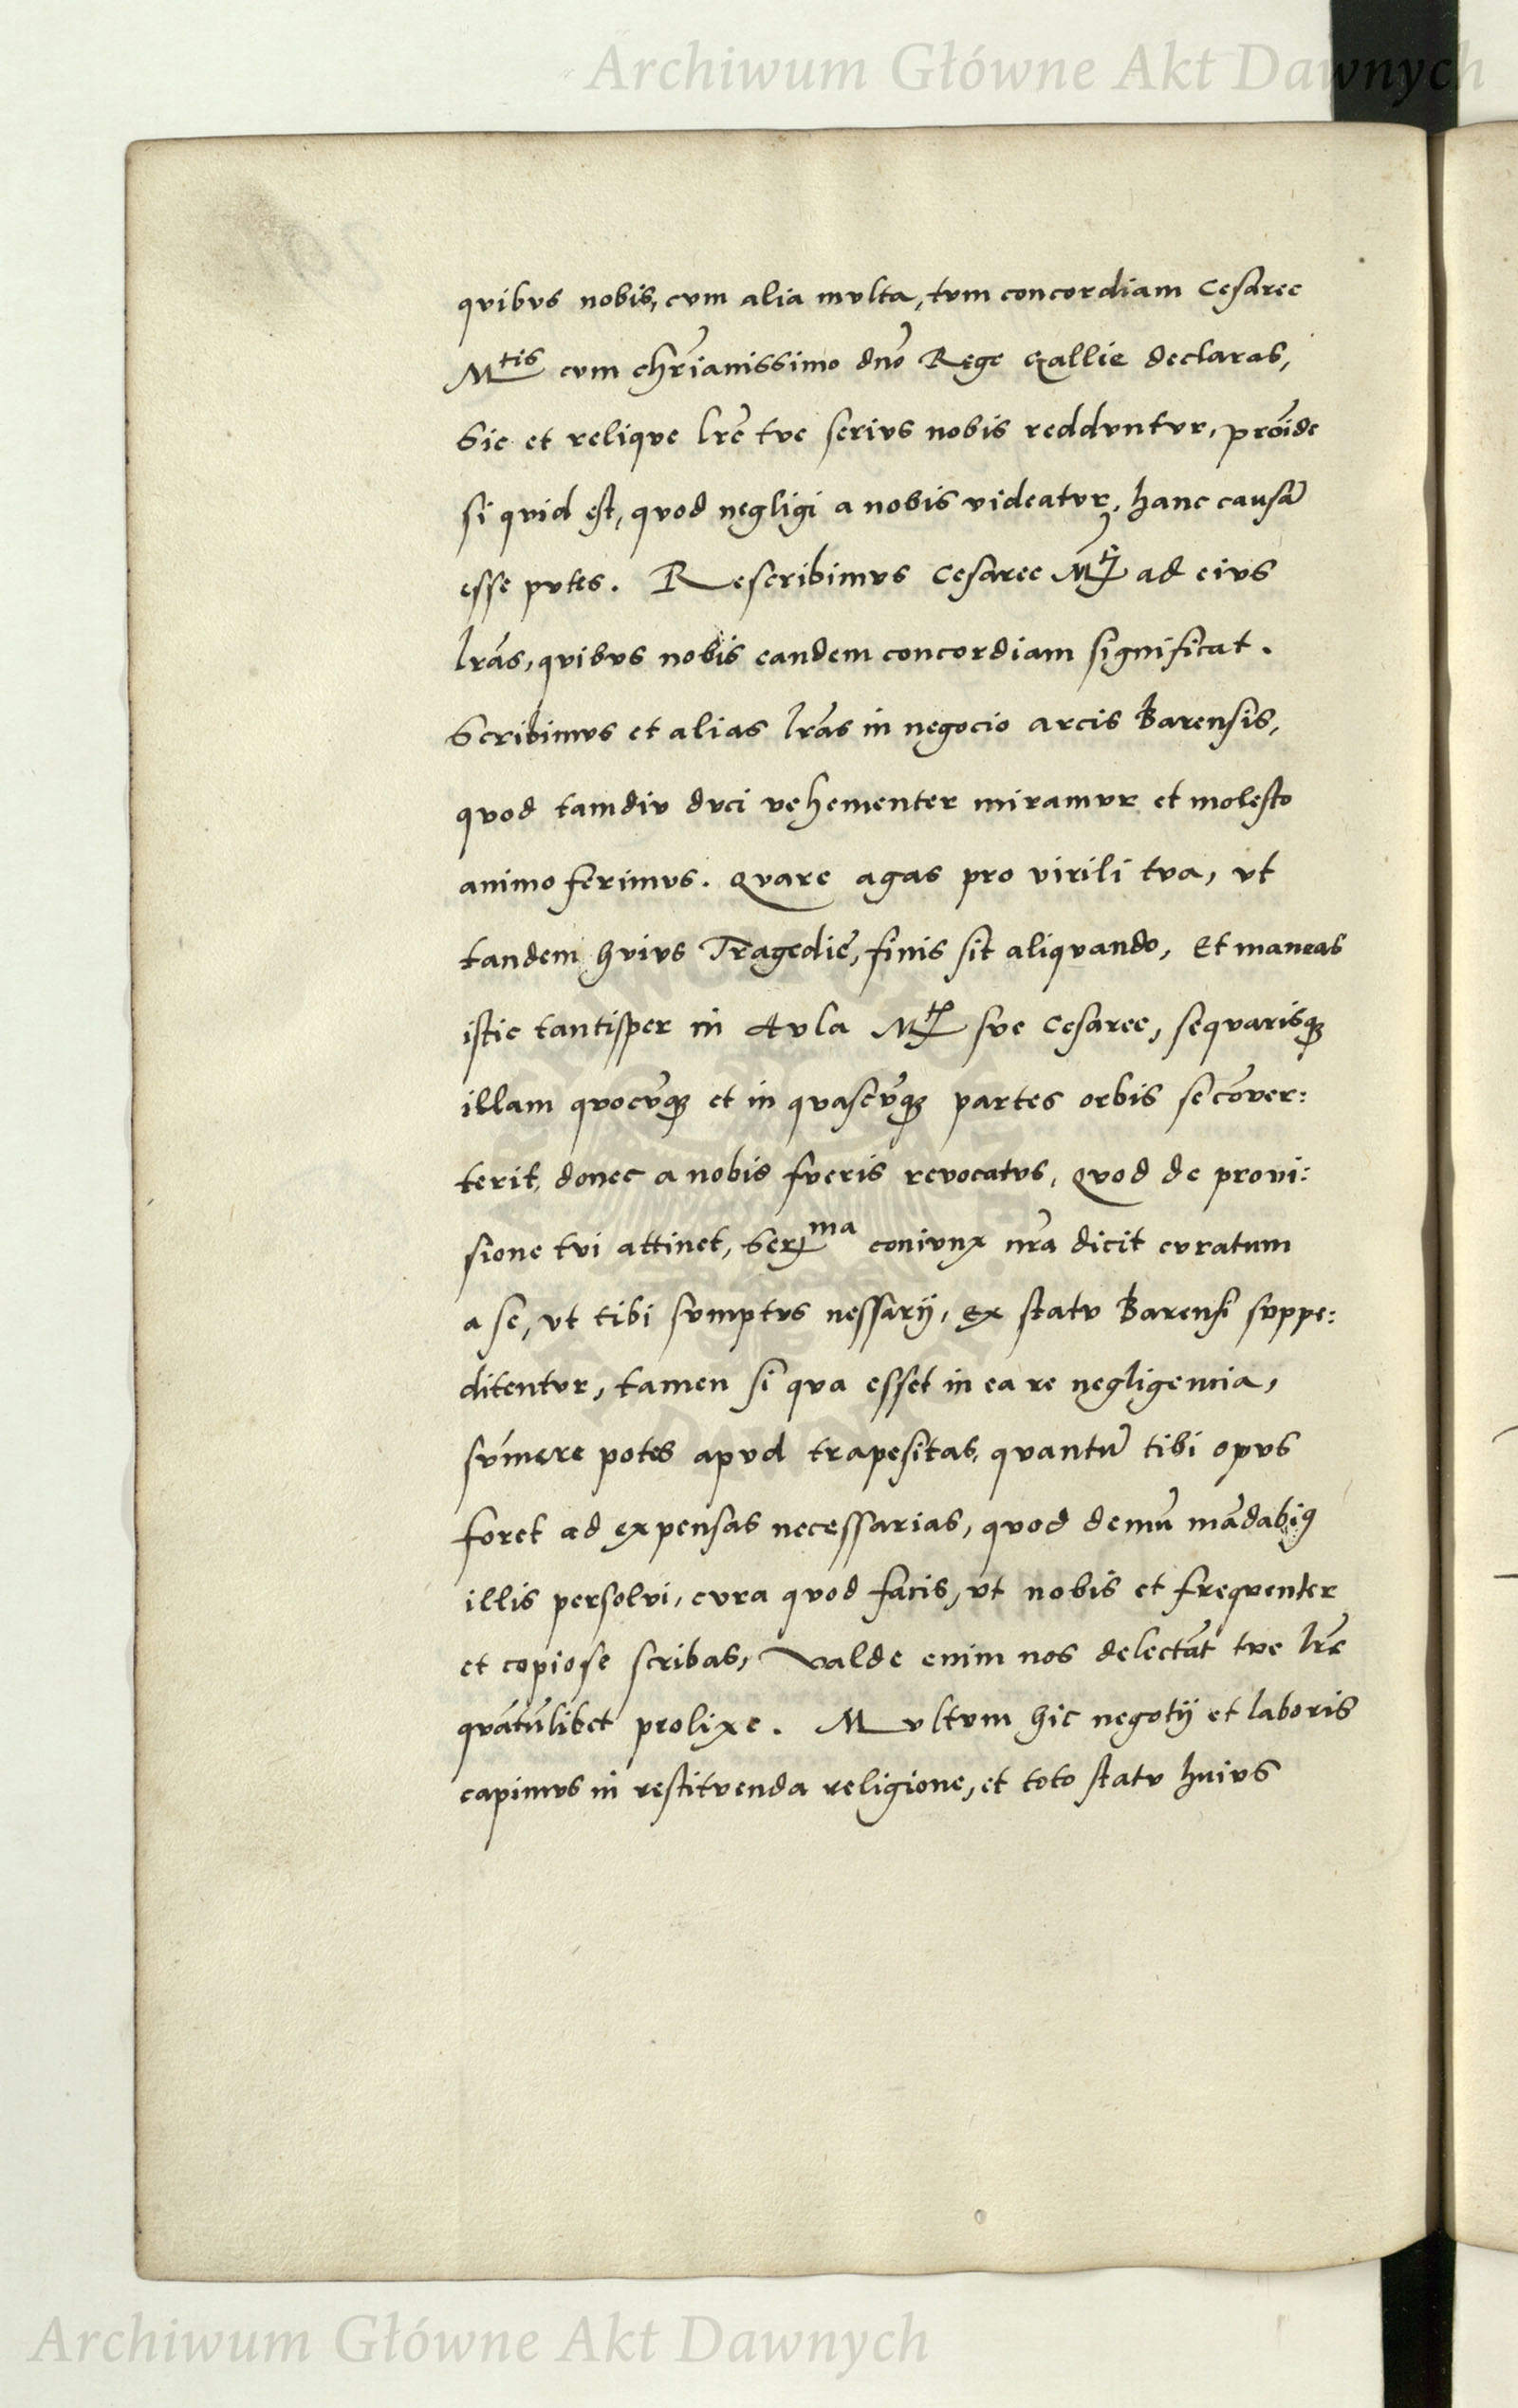 Archiwum Główne Akt Dawnych
qvibvs nobis, cvm alia mvlta, tvm concordiam Cesaree
Mtis cvm chrĩanissimo dnõ Rege Gallie declaras,
Sic et reliqve lrẽ tve serivs nobis reddvntvr, proĩde
si qvid est, qvod negligi a nobis videatvr, hanc causã
esse pvtes. Rescribimvs Cesaree Mti ad eivs
lrãs, qvibvs nobis eandem concordiam significat.
Scribimvs et alias lrãs in negocio arcis Barensis,
qvod tamdiv dvci vehementer miramvr et molesto
animo ferimvs. Qvare agas pro virili tva, vt
tandem hvivs Tragedie, finis sit aliqvando, Et maneas
istic tantisper in Avla Mtis sve Cesaree, seqvarisqꝫ
illam qvocv̄qꝫ et in qvascv̄qꝫ partes orbis se cõver:
terit, donec a nobis fveris revocatvs, Qvod de provi:
sione tvi attinet, Serma conivnx nrã dicit cvratum
a se, vt tibi svmptvs nessarij, ex statv Barensi svppe:
ditentvr, tamen si qva esset in ea re negligencia,
sv̄mere potes apvd trapesitas, qvantũ tibi opvs
foret ad expensas necessarias, qvod demũ mãdabimꝰ
illis persolvi, cvra qvod facis, vt nobis et freqventer
et copiose scribas, Valde enim nos delectãt tve lrẽ
qvãtũlibet prolixe. Mvltvm hic negotij et laboris
capimvs in restitvenda religione, et toto statv huivs
Archiwum Główne Akt Dawnych